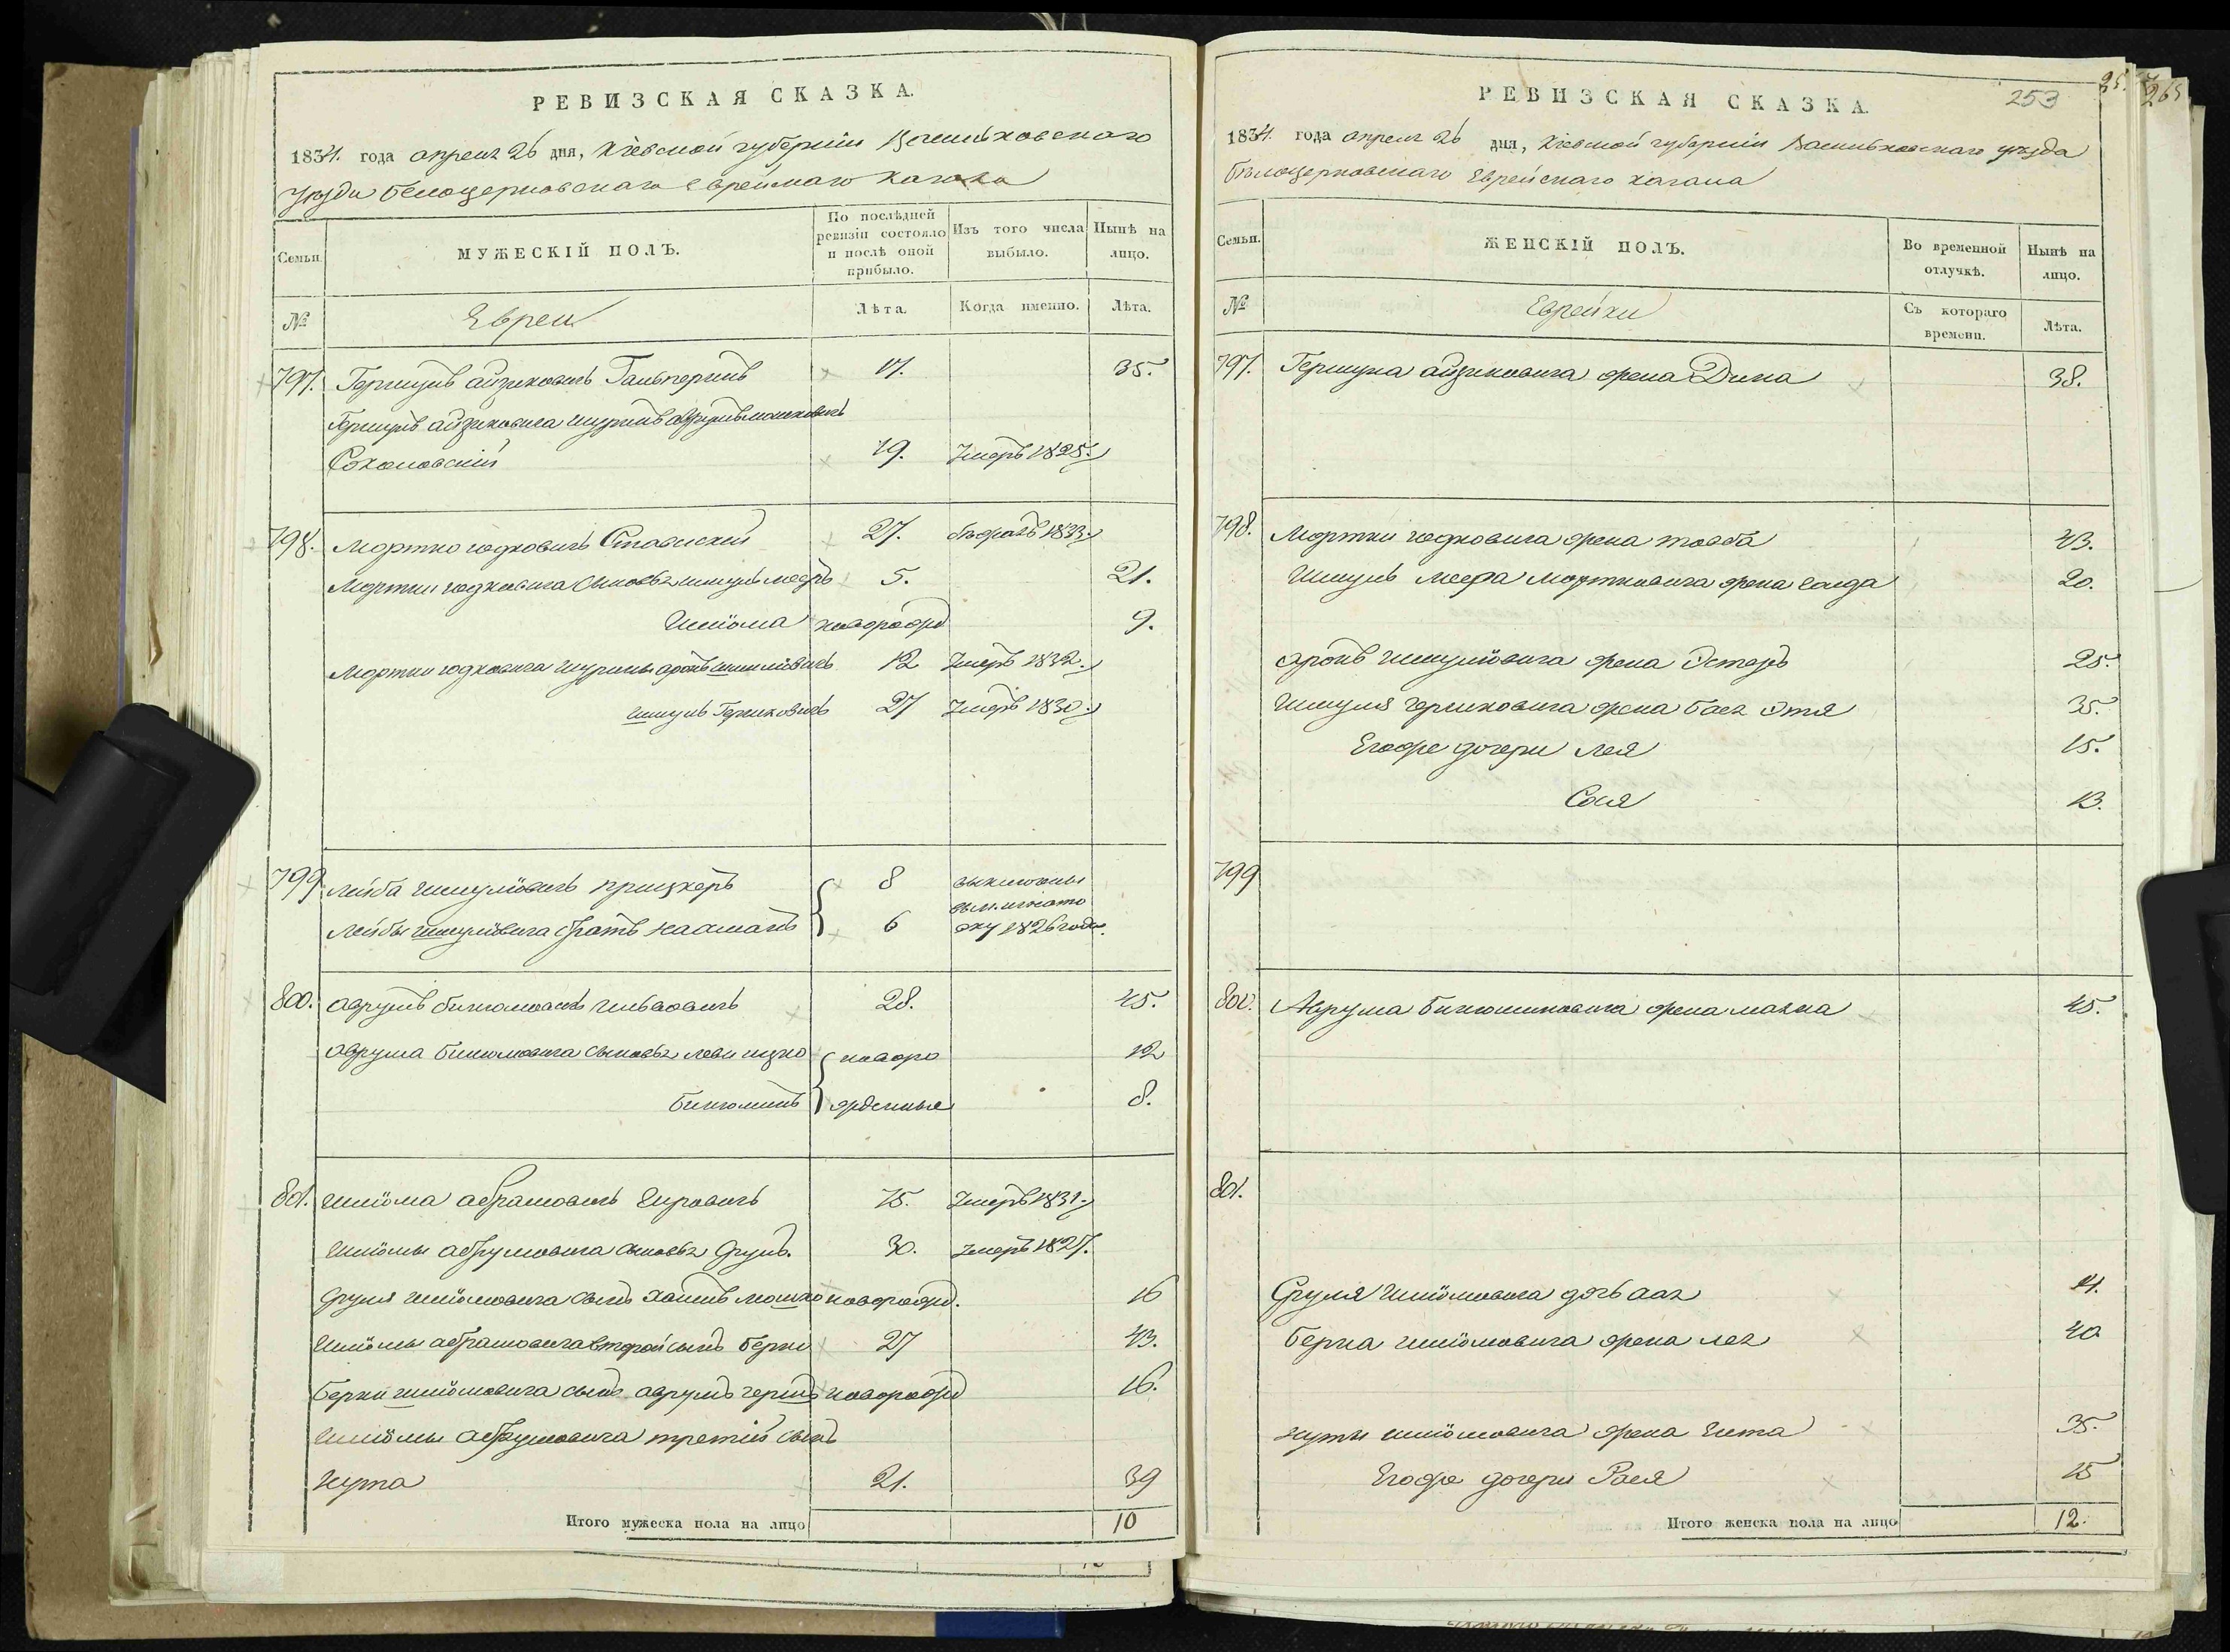 РЕВИЗСКАЯ СКАЗКА.
1834. года апреля 26 дня, Кіевской губерніи Васильковскаго
уезда белоцерковскаго еврейскаго кагала
Семьи.
МУЖЕСКІЙ ПОЛЪ.
По послѣдней ревизіи состояло и послѣ оной прибыло.
Изъ того числа выбыло.
Нынѣ на лицо.
№
Евреи
Лѣта.
Когда именно.
Лѣта.
797. Гершунъ айзиковичъ Гальперинъ 17. 35.
Гершуна айзиковича шуринъ аврумъ мошковичъ
Соколовскій 19. Умеръ 1825.
798. Мортко юдковичъ Ставискій 27. бѣжалъ 1833.
Мортки юдковича сыновья шмуль мееръ 5. 21.
Шліома новорожд 9.
Мортки юдковича шурины аронъ шмуліовичъ 12 Умеръ 1832.
шмуль Гершковичъ 27 Умеръ 1830.
799 Лейба шмуліовичъ прицкеръ 8
Лейбы шмуліовича братъ нахманъ 6 1826 года.
800. аврумъ бинюмовичъ 28. 45.
аврума бинюмовича сыновья леви ицко новоро 12
бинюминъ жденные 8.
801. шліома абрамовичъ 75. Умеръ 1831.
шліомы абрумовича сыновья Сруль. 30. Умеръ 1827.
Сруля шліомовича сынъ хаимъ мошко новорожд. 16
шліомы абрамовича второй сынъ берко 27 43.
берки шліомовича сынъ аврумъ гершъ новорожд 16.
шліомы абрумовича третій сынъ
Нута 21. 39
Итого мужеска пола на лицо 10
РЕВИЗСКАЯ СКАЗКА.
253
265
1834. года апреля 26 дня, Кіевской губерніи Васильковскаго уезда
бѣлоцерковскаго Еврейскаго кагала
Семьи.
ЖЕНСКІЙ ПОЛЪ.
Во временной отлучкѣ.
Нынѣ на лицо.
№
Еврейки
Съ котораго времени.
Лѣта.
797. Гершуна айзиковича жена Дина 38.
798. Мортки юдковича жена товба 43.
Шмуль меера Мортковича жена 20.
аронъ Шмуліовича жена Эстеръ 25.
Шмуля гершковича жена бася Этя 35.
Егоже дочери лея 15.
Сося 13.
799
800. Аврума бинюминовича жена малка 45.
801.
Сруля Шліомовича дочь 14.
Берка шліомовича жена лея 40
Нуты шліомовича жена Гита 35.
Егоже дочери Рася 15
Итого женска пола на лицо 12.